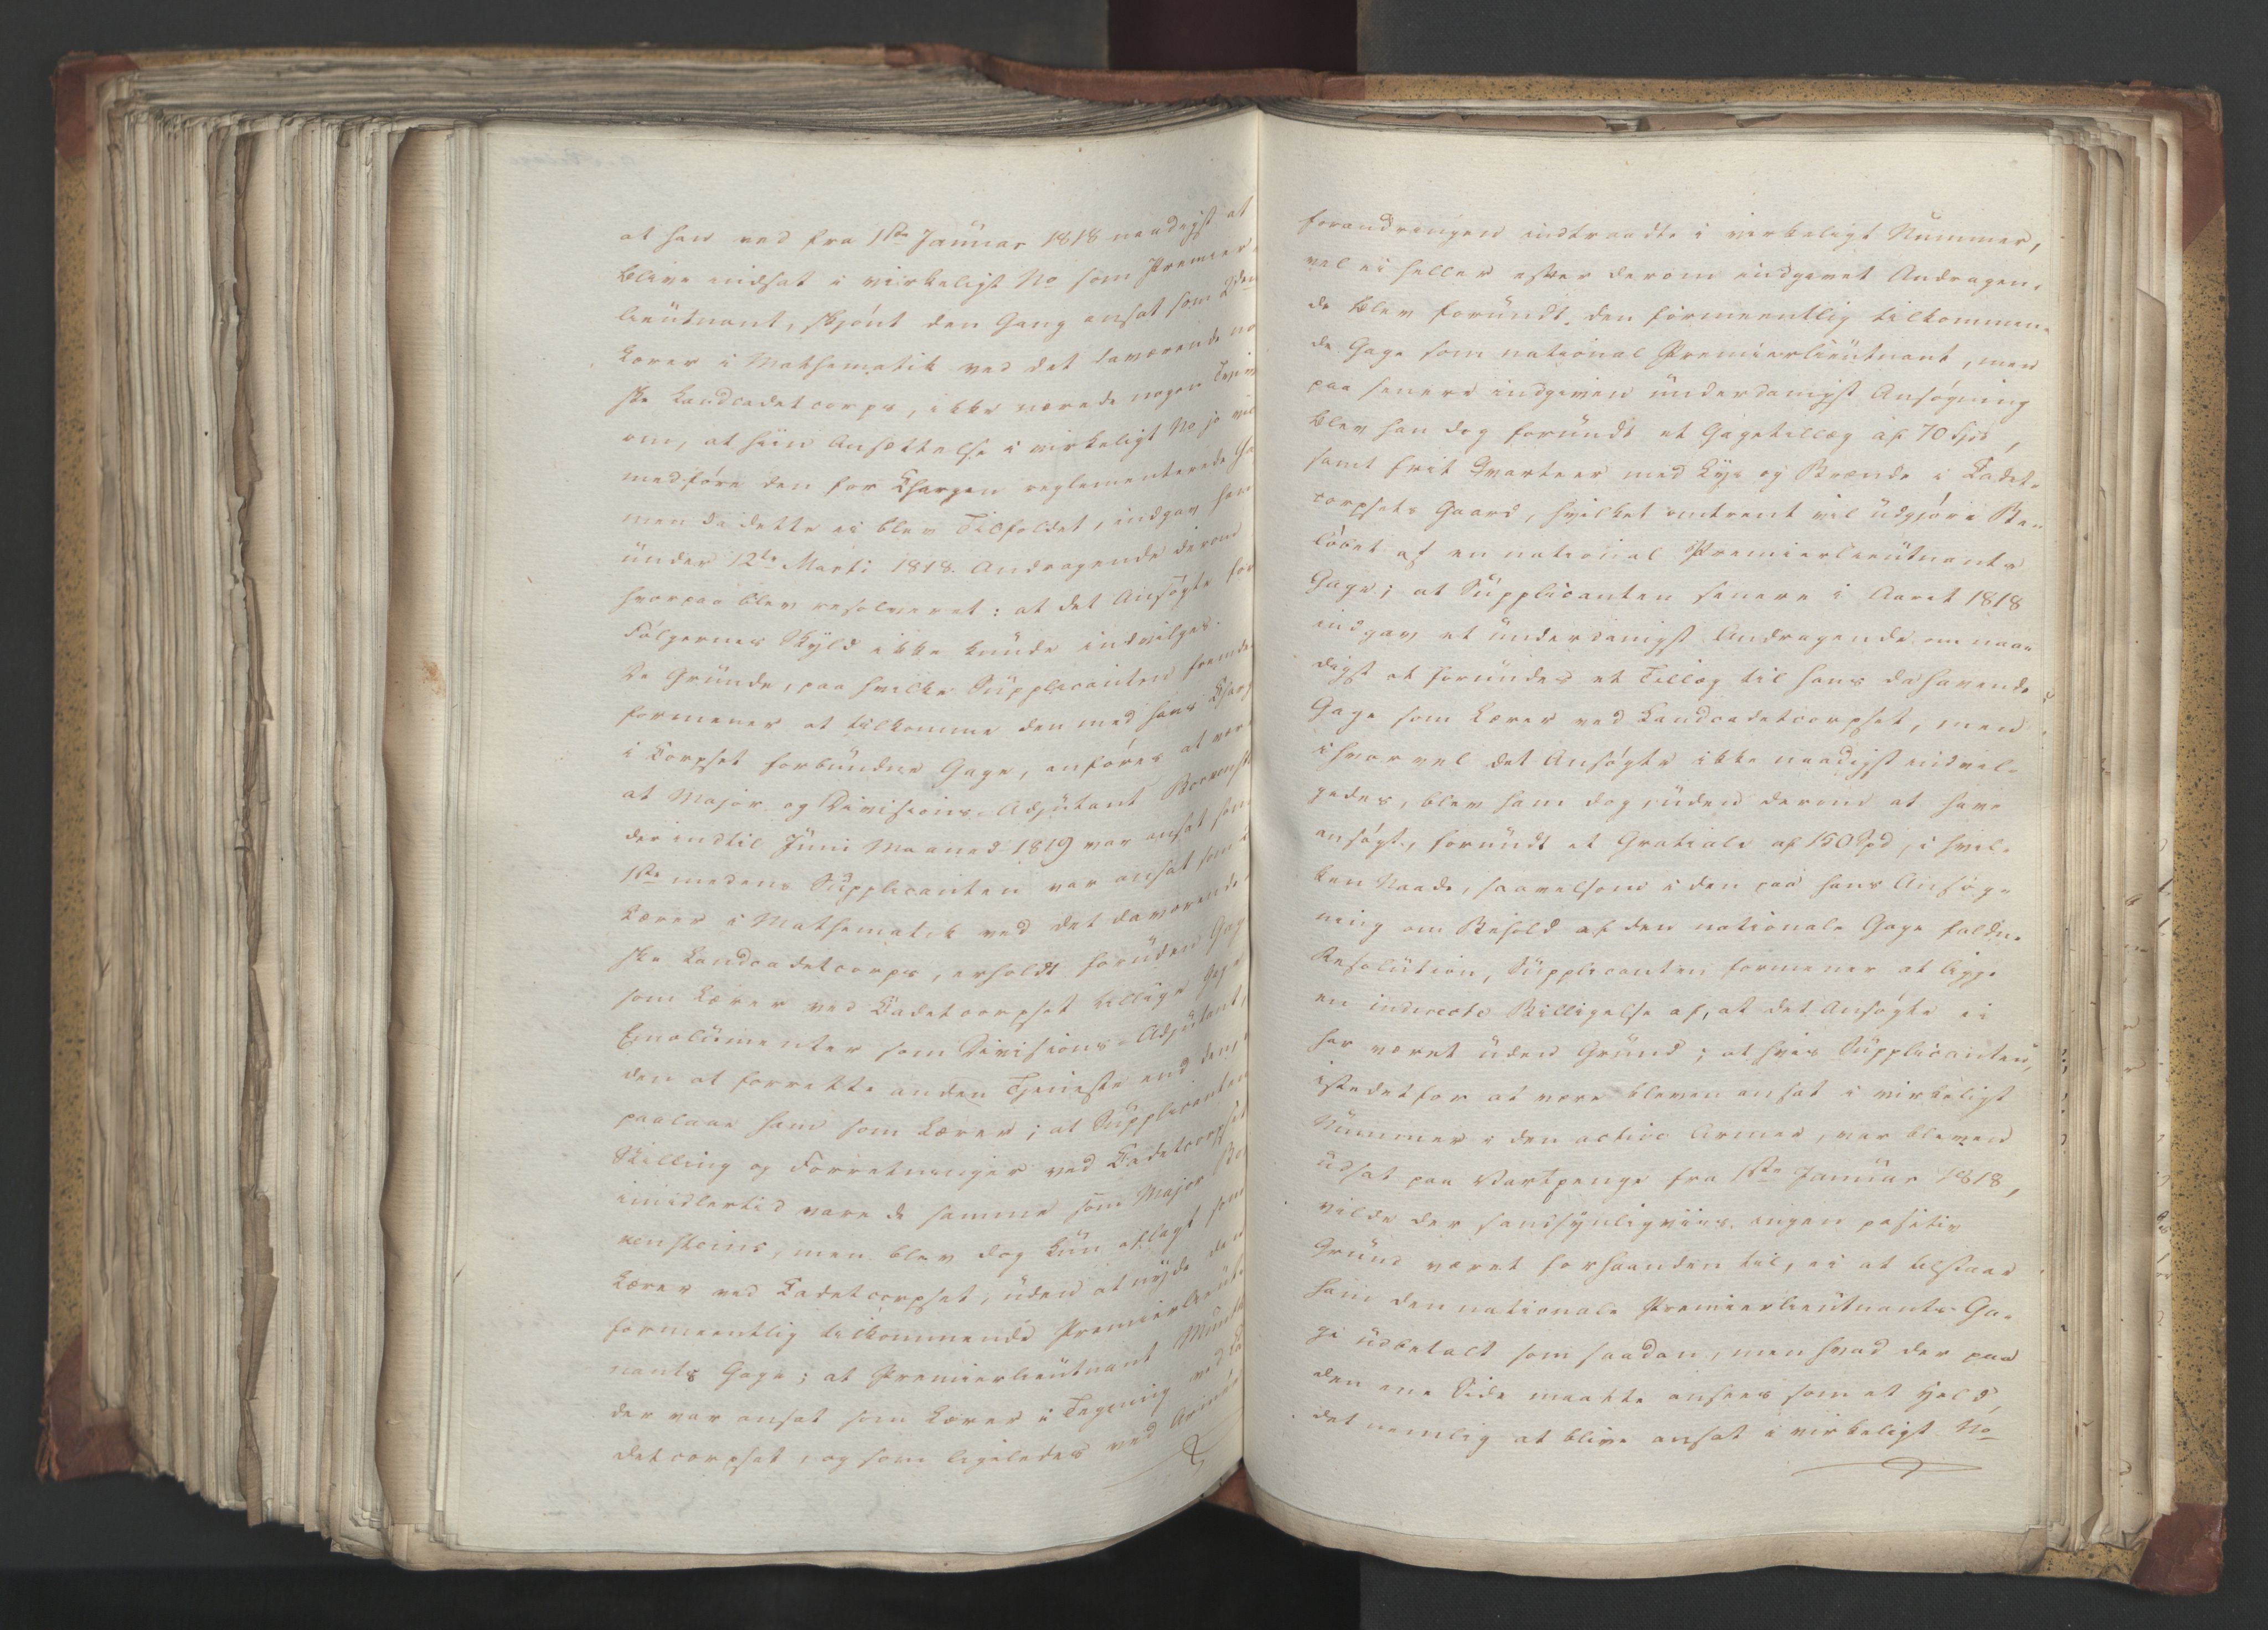 at han ved fra 1ste Januar 1818 naadigst at
blive indsat i virkeligt No som Premier-
lieutnant, skjønt den Gang ansat som 2den
Lærer i Mathematik ved det daværende no
ske Landcadetcorps, ikke nærede nogen Tvivl
om, at hiin Ansættelse i virkeligt No jo vil
medføre den for Chargen reglementerede Ga
men da dette ei blev Tilfældet, indgav han
under 12te Marti 1818. Andragende derom
hvorpaa blev resolveret: at det Ansøgte for
Følgernes Skyld ikke kunde indvilges.
De Grunde, paa hvilke Supplicanten fremde
formener at tilkomme den med hans Charg
i Corpset forbundne Gage, anføres at vær
at Major og Divisions-Adjutant
der indtil Juni Maaned 1819 var ansat som
1ste medens Supplicanten var ansat som 2
Lærer i Mathematik ved det daværende
ske Landcadetcorps, erholdt foruden Gag
som Lærer ved Cadetcorpset tillige Gage
Emolumenter som Divisions-Adjutant,
den at forrette anden Tjeneste end den,
paalaae ham som Lærer; at Supplicanten
Stilling og Forretninger ved Cadetcorpset
imidlertid vare de samme som Major Bo
rensteins, men blev dog kun aflagt som
Lærer ved Cadetcorpset, uden at nyde den
formeentlig tilkommende Premierlieut-
nants Gage; at Premierlieutnant
der var ansat som Lærer i Tegning ved Ca
detcorpset, og som ligeledes ved Armée
forandringen indtraadte i virkeligt Nummer,
vel ei heller efter derom indgivet Andragen-
de blev forundt den formeentlig tilkommen-
de Gage som national Premierlieutnant, men
paa senere indgiven underdanigst Ansøgning
blev han dog forundt et Gagetillæg af 70 Spd,
samt frit Qvarteer med Lys og Brænde i Cadet-
corpsets Gaard, hvilket omtrent vil udgjøre Be-
løbet af en national Premierlieutnants
Gage; at Supplicanten senere i Aaret 1818
indgav et underdanigst Andragende om naa-
digst at forundes et Tillæg til hans da havende
Gage som Lærer ved Landcadetcorpset, men
ihvorvel det Ansøgte ikke naadigst indvil-
gedes, blev ham dog, uden derom at have
ansøgt, forundt et Gratiale af 150 Spd, i hvil-
ken Naade, saavelsom i den paa hans Ansøg-
ning om Behold af den nationale Gage faldne
Resolution, Supplicanten formener at ligge
en indirecte Billigelse af, at det Ansøgte ei
har været uden Grund; at hvis Supplicanten,
istedetfor at være bleven ansat i virkeligt
Nummer i den active Armee, var bleven
udsat paa Vartpenge fra 1ste Januar 1818,
vilde der sandsynligviis ingen positiv
Grund været forhaanden til, ei at tilstaae
ham den nationale Premierlieutnants-Ga-
ge udbetalt som saadan, men hvad der paa
den ene Side maatte ansees som et Held,
det nemlig at blive ansat i virkeligt No